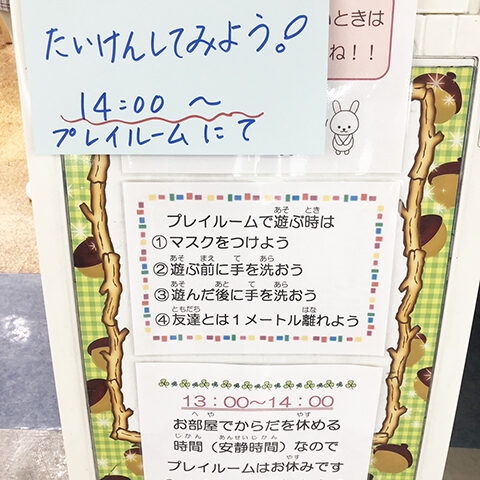 たいけんしてみよう!
14:00 〜
プレイルームにて
いときは
ね!!
プレイルームで遊ぶ時は
①マスクをつけよう
②遊ぶ前に手を洗おう
③遊んだ後に手を洗おう
④友達とは1メートル離れよう
13:00〜14:00
お部屋でからだを休める
時間(安静時間)なので
プレイルームはお休みです